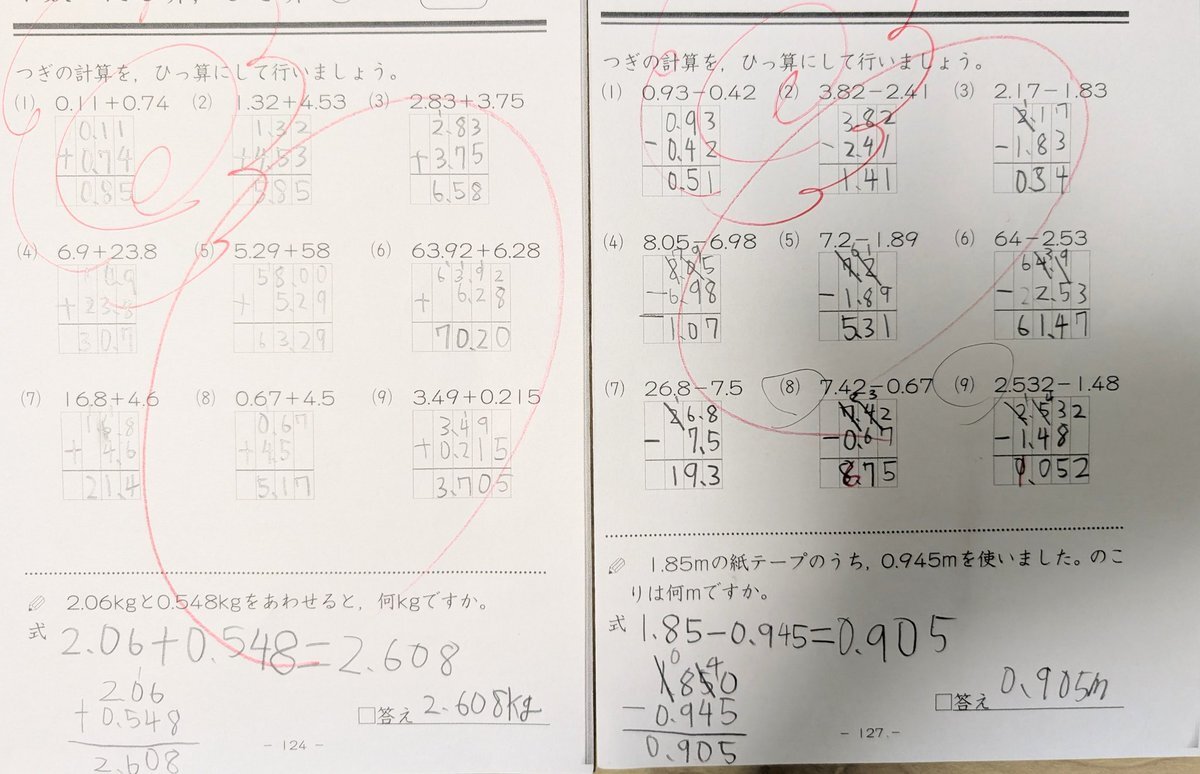 つぎの計算を，ひっ算にして行いましょう。
(1) 0.11+0.74 (2) 1.32+4.53 (3) 2.83+3.75
0.11 1.32 2.83
+0.74 +4.53 +3.75
0.85 5.85 6.58
(4) 6.9+23.8 (5) 5.29+58 (6) 63.92+6.28
6.9 58.00 63.92
+23.8 +5.29 +6.28
30.7 63.29 70.20
(7) 16.8+4.6 (8) 0.67+4.5 (9) 3.49+0.215
16.8 0.67 3.49
+4.6 +4.5 +0.215
21.4 5.17 3.705
2.06kgと0.548kgをあわせると，何kgですか。
式 2.06+0.548=2.608
2.06
+0.548
2.608
□答え 2.608kg
- 124 -
つぎの計算を，ひっ算にして行いましょう。
(1) 0.93−0.42 (2) 3.82−2.41 (3) 2.17−1.83
0.93 3.82 2.17
-0.42 -2.41 -1.83
0.51 1.41 0.34
(4) 8.05−6.98 (5) 7.2−1.89 (6) 64−2.53
8.05 7.2 64
-6.98 -1.89 -2.53
1.07 5.31 61.47
(7) 26.8−7.5 (8) 7.42−0.67 (9) 2.532−1.48
26.8 7.42 2.532
-7.5 -0.67 -1.48
19.3 6.75 1.052
1.85mの紙テープのうち，0.945mを使いました。のこ
りは何mですか。
式 1.85−0.945=0.905
1.850
-0.945
0.905
□答え 0.905m
- 127 -